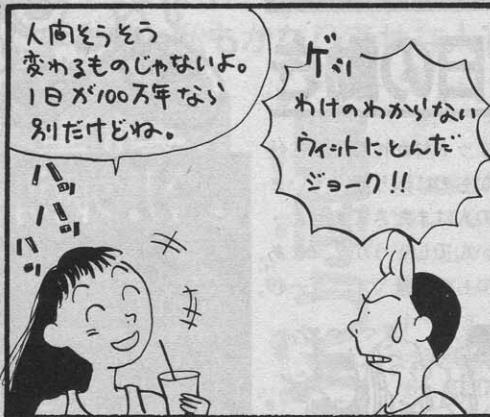 人間そうそう
変わるものじゃないよ。
1日が100万年なら
別だけどね。
ゲッ
わけのわからない
ウィットにとんだ
ジョーク!!